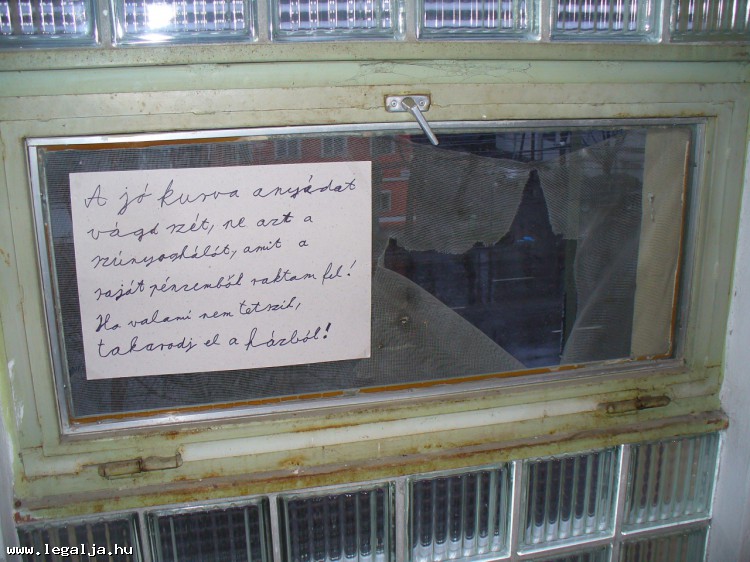 A jó kurva anyádat
vágd szét, ne azt a
szúnyoghálót, amit a
saját pénzemből raktam fel!
Ha valami nem tetszik,
takarodj el a házból!
www.legalja.hu